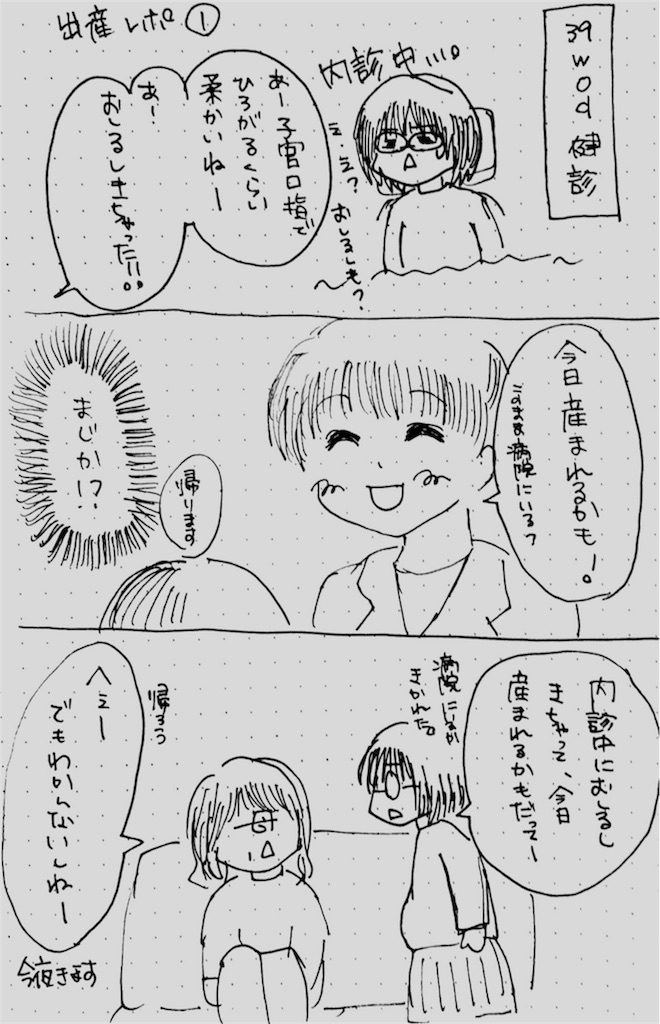 出産レポ①
39w0d 健診
内診中...。
え・えっ、おしるしも?
あー子宮口指で
ひろがるくらい
柔かいねー
あ、
おしるしきちゃった!!。
今日産まれるかも!。
このまま病院にいる?
帰ります
まじか!?
内診中におしるし
きちゃって、今日
産まれるかもだってー
病院にいるか
きかれた。
帰ろう
母
へぇー
でもわかんないしねー
今夜きます